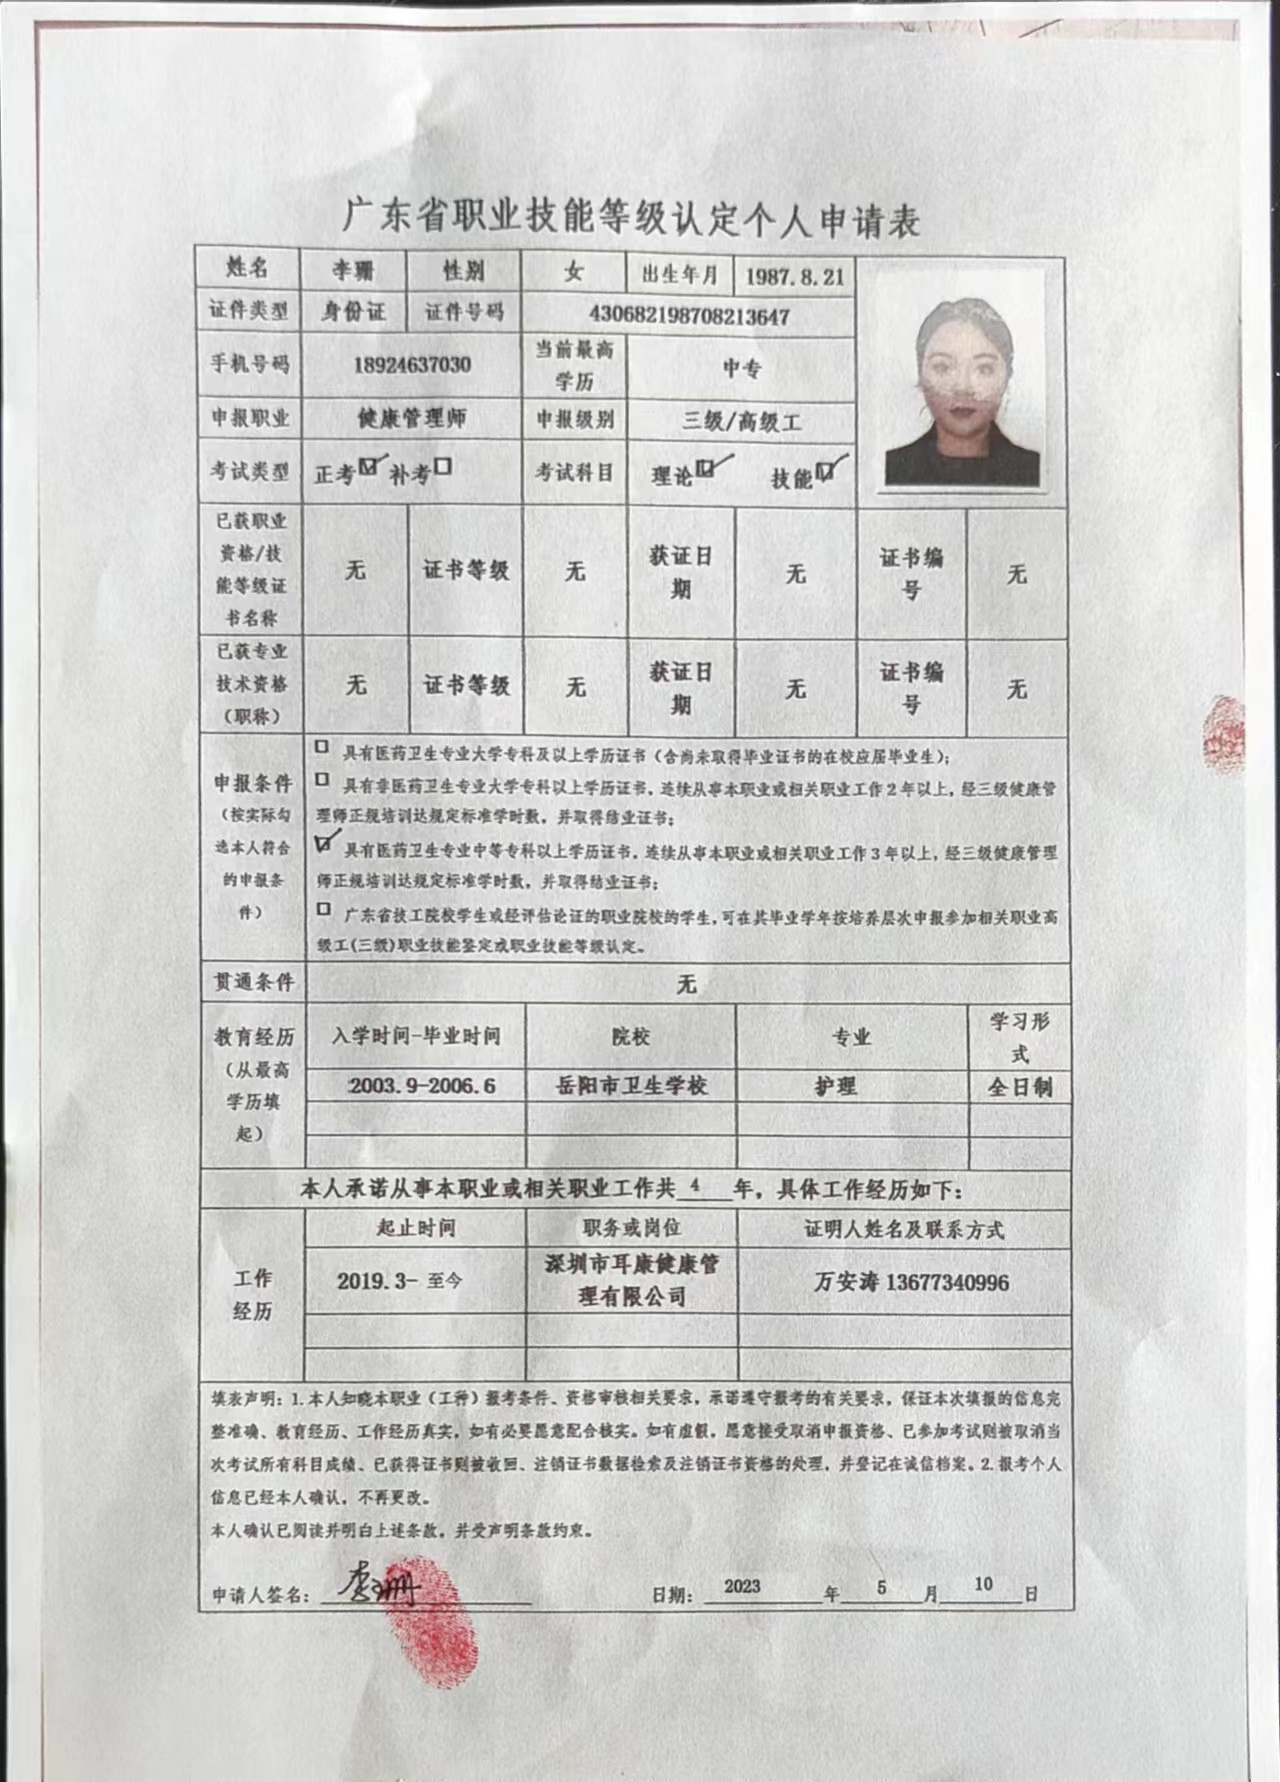 广东省职业技能等级认定个人申请表
姓名 李珊 性别 女 出生年月 1987.8.21
证件类型 身份证 证件号码 430682198708213647
手机号码 18924637030 当前最高学历 中专
申报职业 健康管理师 申报级别 三级/高级工
考试类型 正考☑ 补考□ 考试科目 理论☑ 技能☑
已获职业资格/技能等级证书名称 无 证书等级 无 获证日期 无 证书编号 无
已获专业技术资格（职称） 无 证书等级 无 获证日期 无 证书编号 无
申报条件（按实际勾选本人符合的申报条件）
□ 具有医药卫生专业大学专科及以上学历证书（含尚未取得毕业证书的在校应届毕业生）；
□ 具有非医药卫生专业大学专科以上学历证书，连续从事本职业或相关职业工作2年以上，经三级健康管
理师正规培训达规定标准学时数，并取得结业证书；
☑ 具有医药卫生专业中等专科以上学历证书，连续从事本职业或相关职业工作3年以上，经三级健康管理
师正规培训达规定标准学时数，并取得结业证书；
□ 广东省技工院校学生或经评估论证的职业院校的学生，可在其毕业学年按培养层次申报参加相关职业高
级工(三级)职业技能鉴定或职业技能等级认定。
贯通条件 无
教育经历（从最高学历填起） 入学时间-毕业时间 院校 专业 学习形式
2003.9-2006.6 岳阳市卫生学校 护理 全日制
本人承诺从事本职业或相关职业工作共 4 年，具体工作经历如下：
工作经历 起止时间 职务或岗位 证明人姓名及联系方式
2019.3-至今 深圳市耳康健康管理有限公司 万安涛 13677340996
填表声明：1.本人知晓本职业（工种）报考条件、资格审核相关要求，承诺遵守报考的有关要求，保证本次填报的信息完
整准确、教育经历、工作经历真实，如有必要愿意配合核实。如有虚假，愿意接受取消申报资格、已参加考试则被取消当
次考试所有科目成绩、已获得证书则被收回、注销证书数据检索及注销证书资格的处理，并登记在诚信档案。2.报考个人
信息已经本人确认，不再更改。
本人确认已阅读并明白上述条款，并受声明条款约束。
申请人签名： 李珊 日期： 2023 年 5 月 10 日